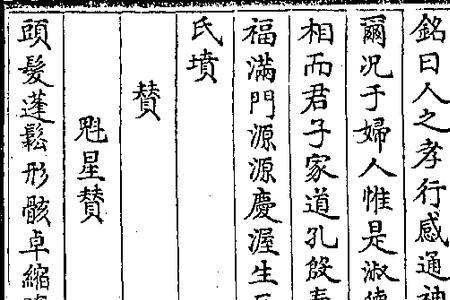 銘曰人之孝行感通神
爾况于婦人惟是淑德
相而君子家道孔殷
福滿門源源慶渥生
氏墳
賛
魁星賛
頭髮蓬鬆形骸卓縮